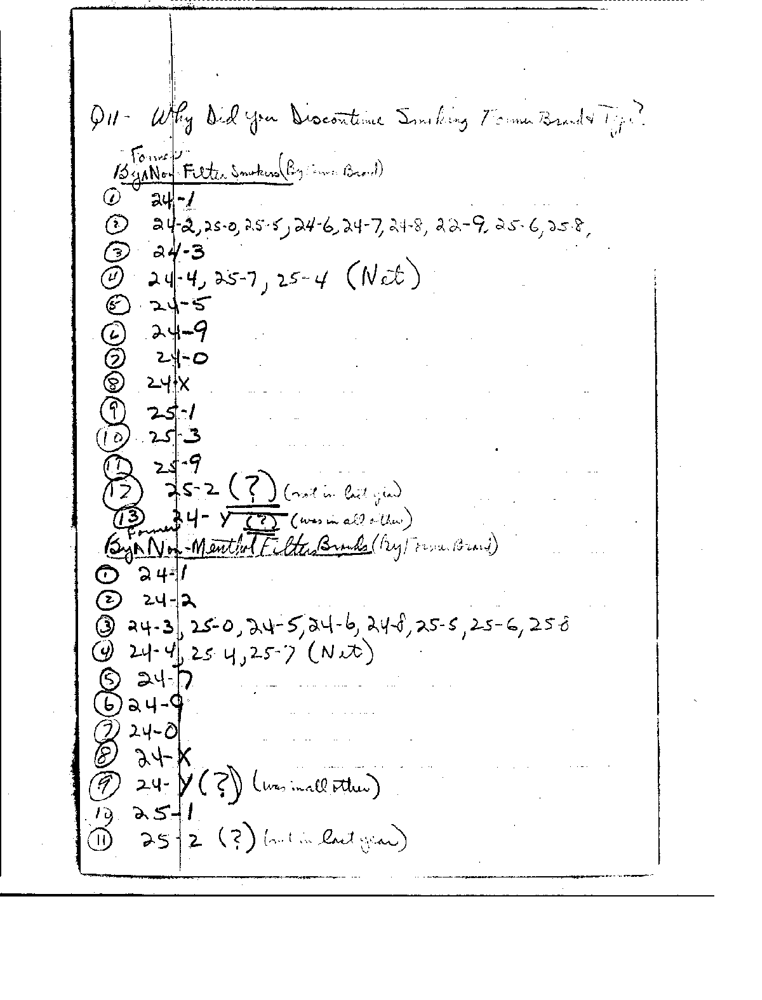 Q11- Why Did You Discontinue Smoking Former Brand & Type?
Former
By ^ Non-Filter Smokers (By Former Brand)
① 24-1
② 24-2, 25-0, 25-5, 24-6, 24-7, 24-8, 22-9, 25-6, 25-8,
③ 24-3
④ 24-4, 25-7, 25-4 (Net)
⑤ 24-5
⑥ 24-9
⑦ 24-0
⑧ 24-X
⑨ 25-1
⑩ 25-3
⑪ 25-9
⑫ 25-2 (?) (not in last year)
⑬ 24-Y (?) (was in all other)
Former
By ^ Non-Menthol Filter Brands (By Former Brand)
① 24-1
② 24-2
③ 24-3, 25-0, 24-5, 24-6, 24-8, 25-5, 25-6, 25-8
④ 24-4, 25-4, 25-7 (Net)
⑤ 24-7
⑥ 24-9
⑦ 24-0
⑧ 24-X
⑨ 24-Y (?) (was in all other)
⑩ 25-1
⑪ 25-2 (?) (not in last year)